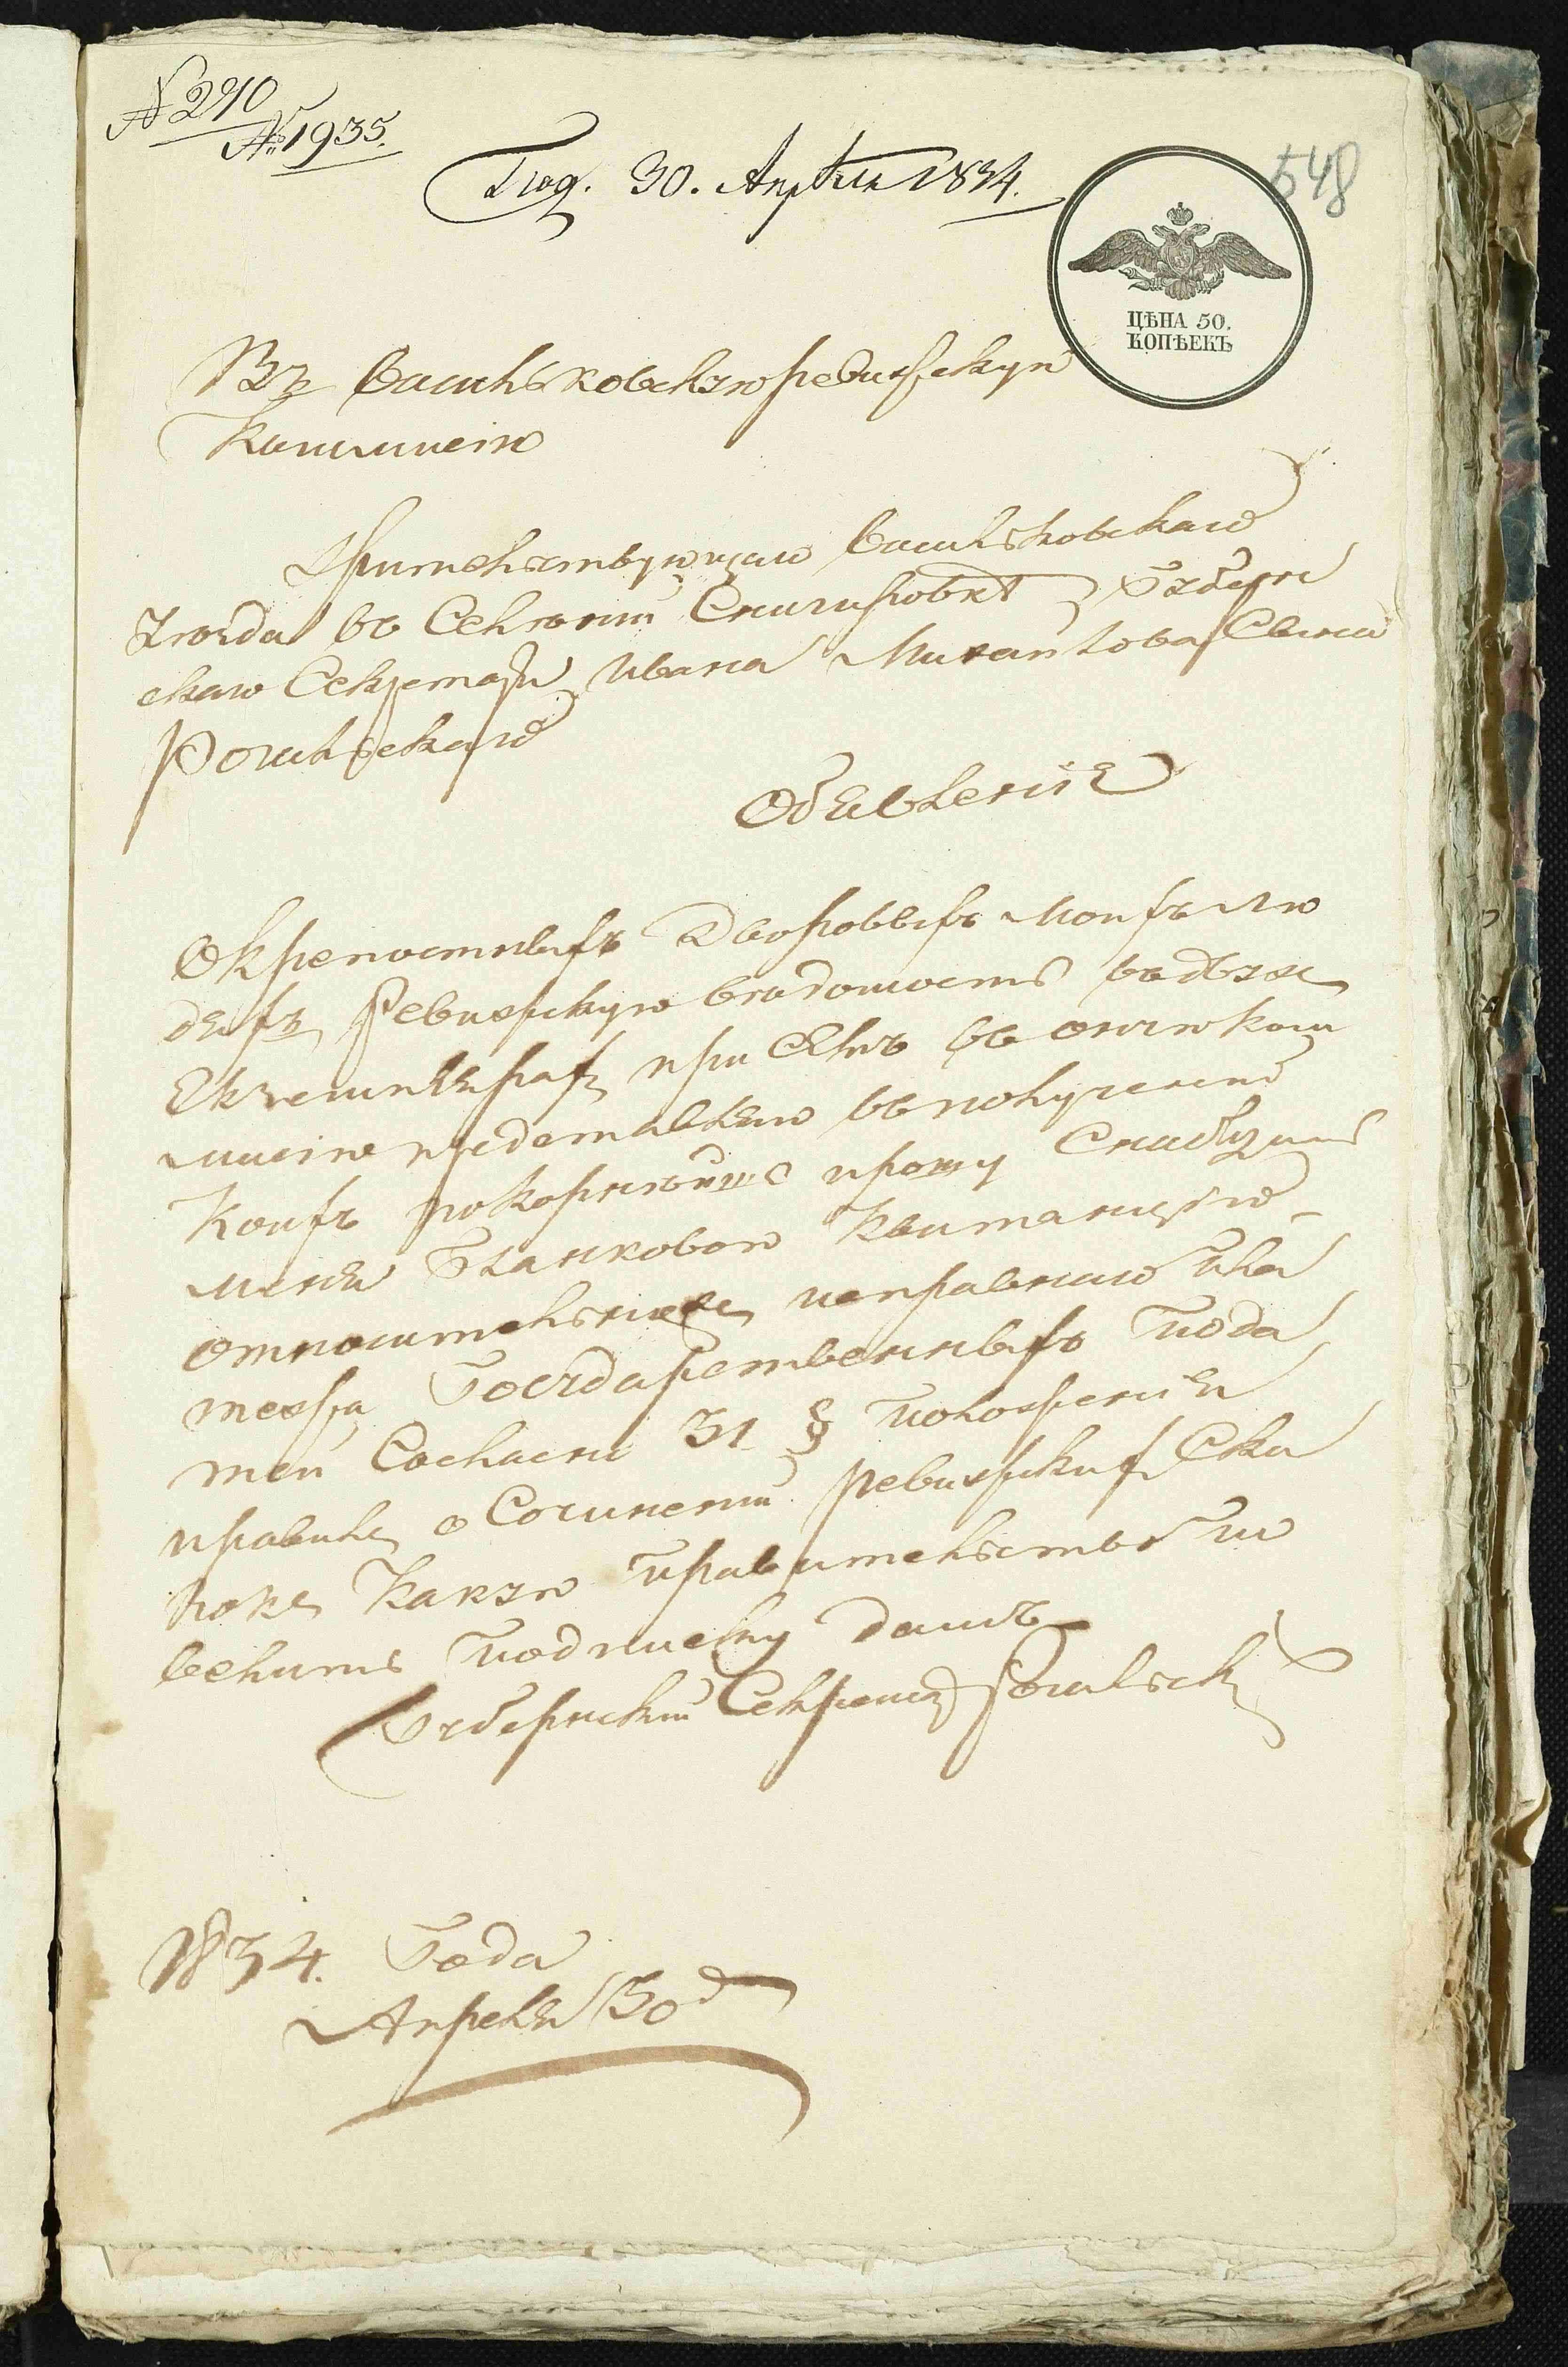 № 240
№ 1935.
Под. 30. Апрѣля 1834.
548
ЦѢНА 50.
КОПѢЕКЪ
Въ Васильковскую ревизскую
Коммисію
Жительствующаго Васильковскаго
уезда въ Селении Снигировкѣ Губерн
скаго Секретаря Ивана Михайлова Сына
Рогильскаго
Обявленіе
О крепостныхъ Дворовыхъ моихъ лю
дяхъ ревизскую ведомость въ двухъ
Екземплярахъ при семъ въ оную ком
мисію представляю въ получении
Коихъ покорнейше прошу Снабдить
меня Бланковою квитанціею
относительно исправнаго пла
тежа Государственныхъ пода
тей Согласно 31 § положения
правилъ о Сочинении ревизскихъ Ска
зокъ какую правительство по
велитъ подписку дамъ
Губернский Секретарь Рогильск
1834. Года
Апреля 30 д